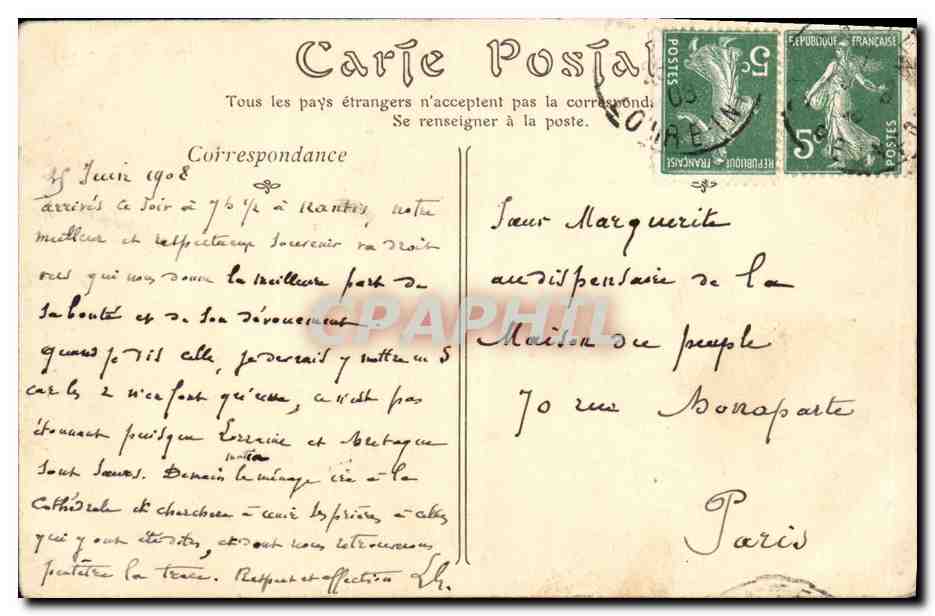 Carte Postale
Tous les pays étrangers n'acceptent pas la correspond
Se renseigner à la poste.
Correspondance
15 Juin 1908
arrivés ce soir à 7h 1/2 à Nantes, notre
meilleur et respectueux souvenir va droit
vers qui nous donne la meilleure part de
sa bonté et de son dévouement.
Quand je dis celle, je devrais y mettre un S
car les 2 n'en font qu'une, ce n'est pas
étonnant puisque Lorraine et Bretagne
sont sœurs. Demain matin le ménage ira à la
Cathédrale et cherchera à unir ses prières à celles
qui y ont été dites, et dont nous retrouverons
peutêtre la trace. Respect et affection
Sœur Marguerite
au dispensaire de la
Maison du peuple
70 rue Bonaparte
Paris
REPUBLIQUE FRANÇAISE
5c
POSTES
REPUBLIQUE FRANÇAISE
5c
POSTES
CPAPHIL